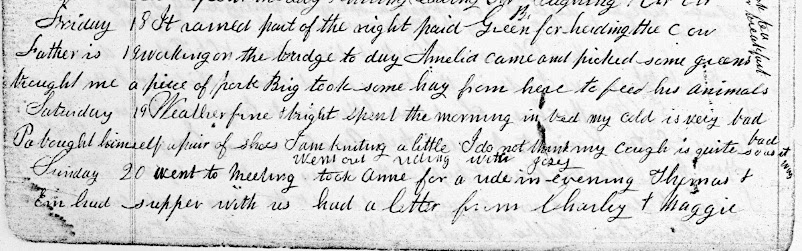 Friday 18 It rained part of the night paid B. Green for herding the cow
Father is 18 working on the bridge to day Amelia came and picked some greens
brought me a piece of pork Brig took some hay from here to feed his animals
Saturday 19 Weather fine & bright spent the morning in bed my cold is very bad
Pa bought himself a pair of shoes I am kniting a little I do not think my cough is quite so bad
went out riding with
Sunday 20 went to meeting took Anne for a ride in evening Thomas &
Em had supper with us had a letter from Charley & Maggie